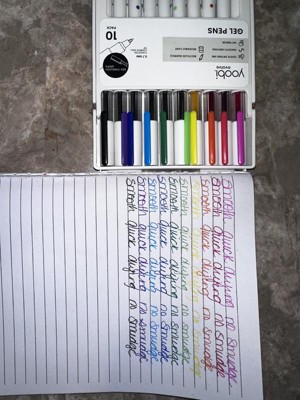 yoobi
GEL PENS
10
PACK
Smooth quick drying no smudge
Smooth quick drying no smudge
Smooth quick drying no smudge
Smooth quick drying no smudge
Smooth quick drying no smudge
Smooth quick drying no smudge
Smooth quick drying no smudge
Smooth quick drying no smudge
Smooth quick drying no smudge
Smooth quick drying no smudge